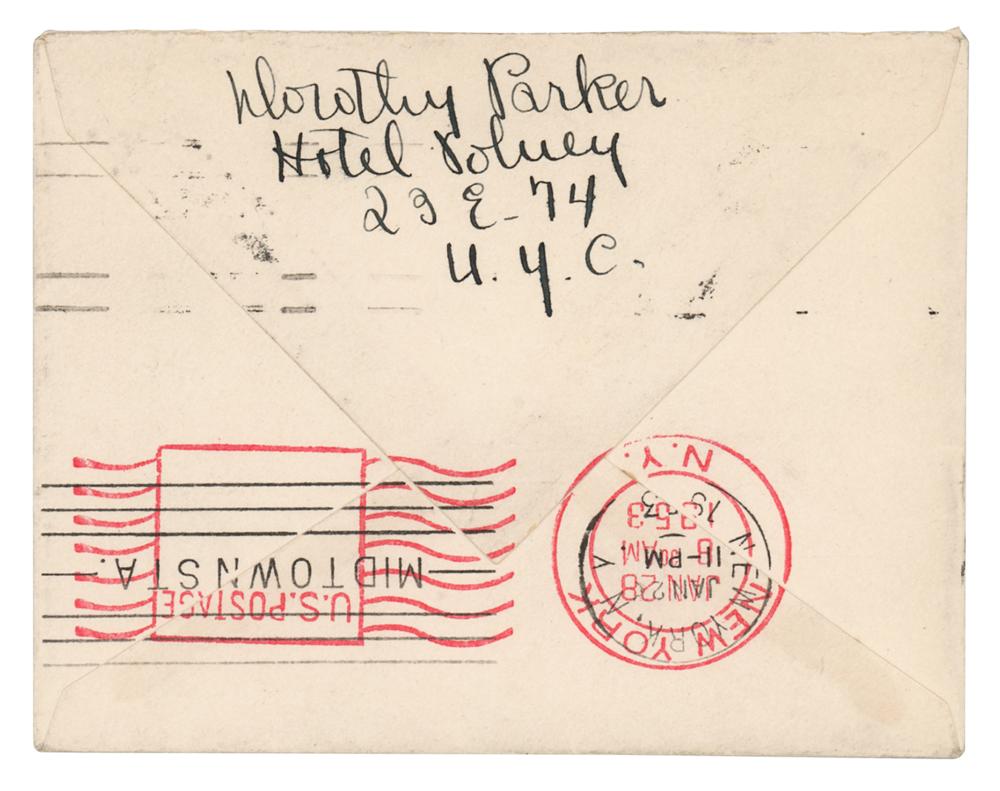 Dorothy Parker
Hotel Volney
23 E - 74
N. Y. C.
U.S. POSTAGE
MIDTOWN STA.
NEW YORK
JAN 28
AM
1953
N.Y.
NEW YORK, N.Y.
JAN
11 - PM